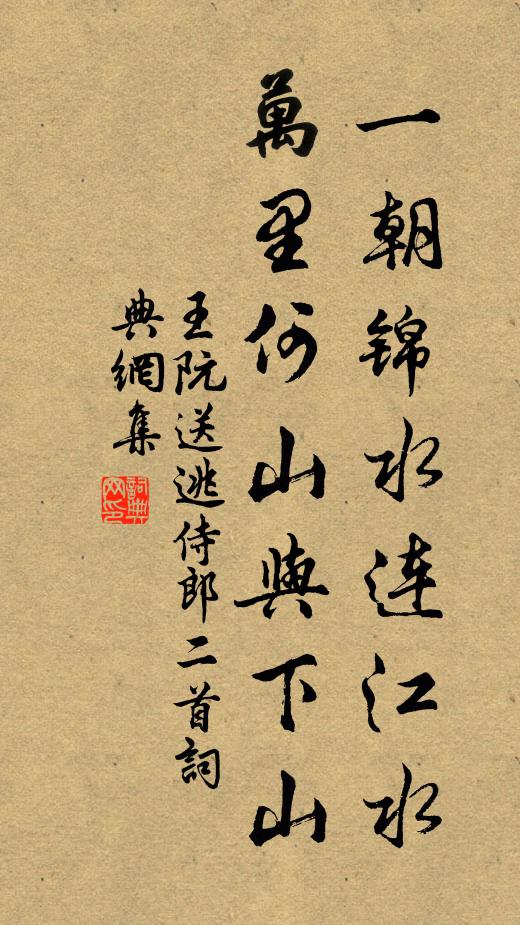 一朝锦水連江水
萬里何山與下山
王阮送逃侍郎二首詞
典網集
詞典網印